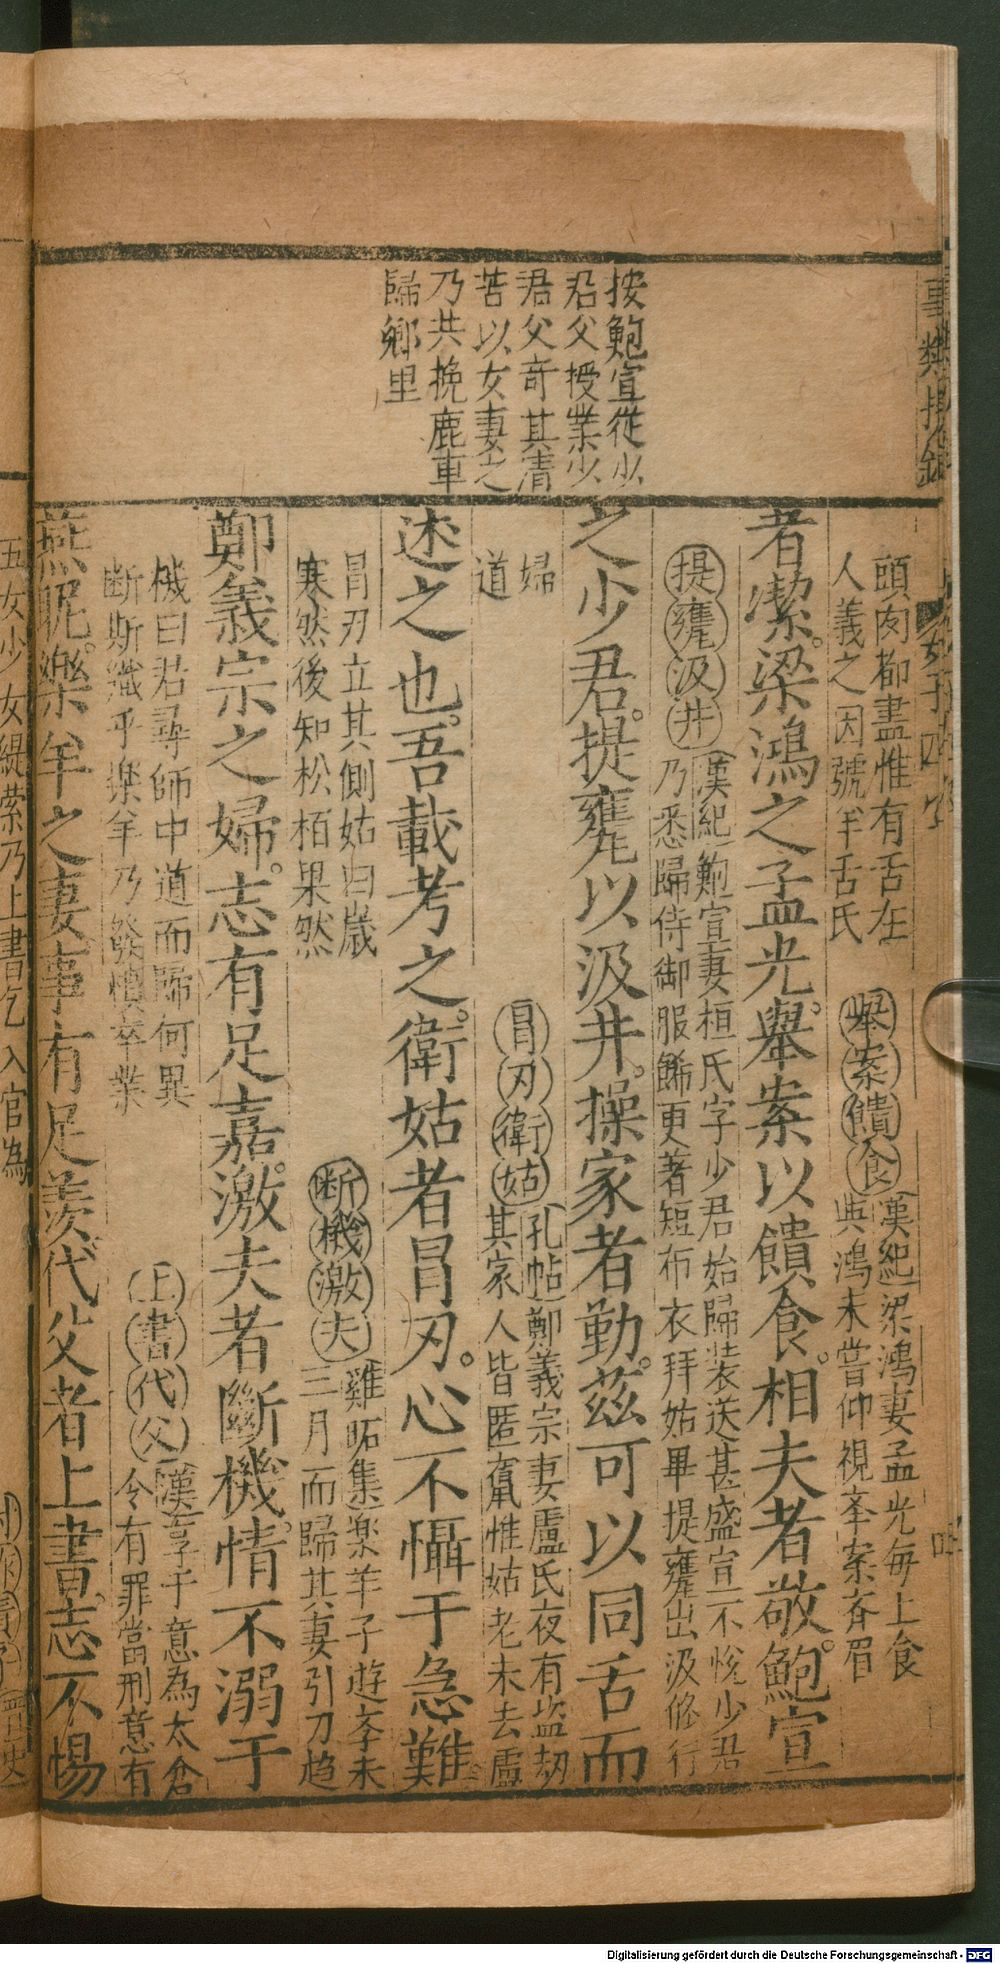 按鮑宣從少
君父授業少
君父奇其清
苦以女妻之
乃共挽鹿車
歸鄉里
頭肉都盡惟有舌在
人義之因號羊舌氏
舉案饋食
漢紀梁鴻妻孟光每上食
與鴻未嘗仰視奉案斉眉
者潔。梁鴻之孟光。舉案以饋食。相夫者敬。鮑宣
提甕汲井
漢紀鮑宣妻桓氏字少君始歸装送甚盛宣不悅少君
乃悉歸侍御服飾更著短布衣拜姑畢提甕出汲修行
婦
道
之少君。提甕以汲井。操家者勤。茲可以同舌而
冒刃衛姑
孔帖鄭義宗妻盧氏夜有盗刼
其家人皆匿竄惟姑老未去盧
冒刃立其側姑曰歲
寒然後知松栢果然
述之也。吾載考之。衛姑者冒刃。心不懾于急難。
断機激夫
雞跖集楽羊子遊孝未
三月而歸其妻引刀趋
機曰君尋師中道而歸何異
断斯織乎楽羊乃發憤卒業
鄭義宗之婦。志有足嘉。激夫者斷機。情不溺于
上書代父
漢淳于意為太倉
令有罪當刑意有
燕昵。樂羊之妻事有足羨代父者上書。志不惕
五女少女緹縈乃上書乞入官為
Digitalisierung gefördert durch die Deutsche Forschungsgemeinschaft - DFG